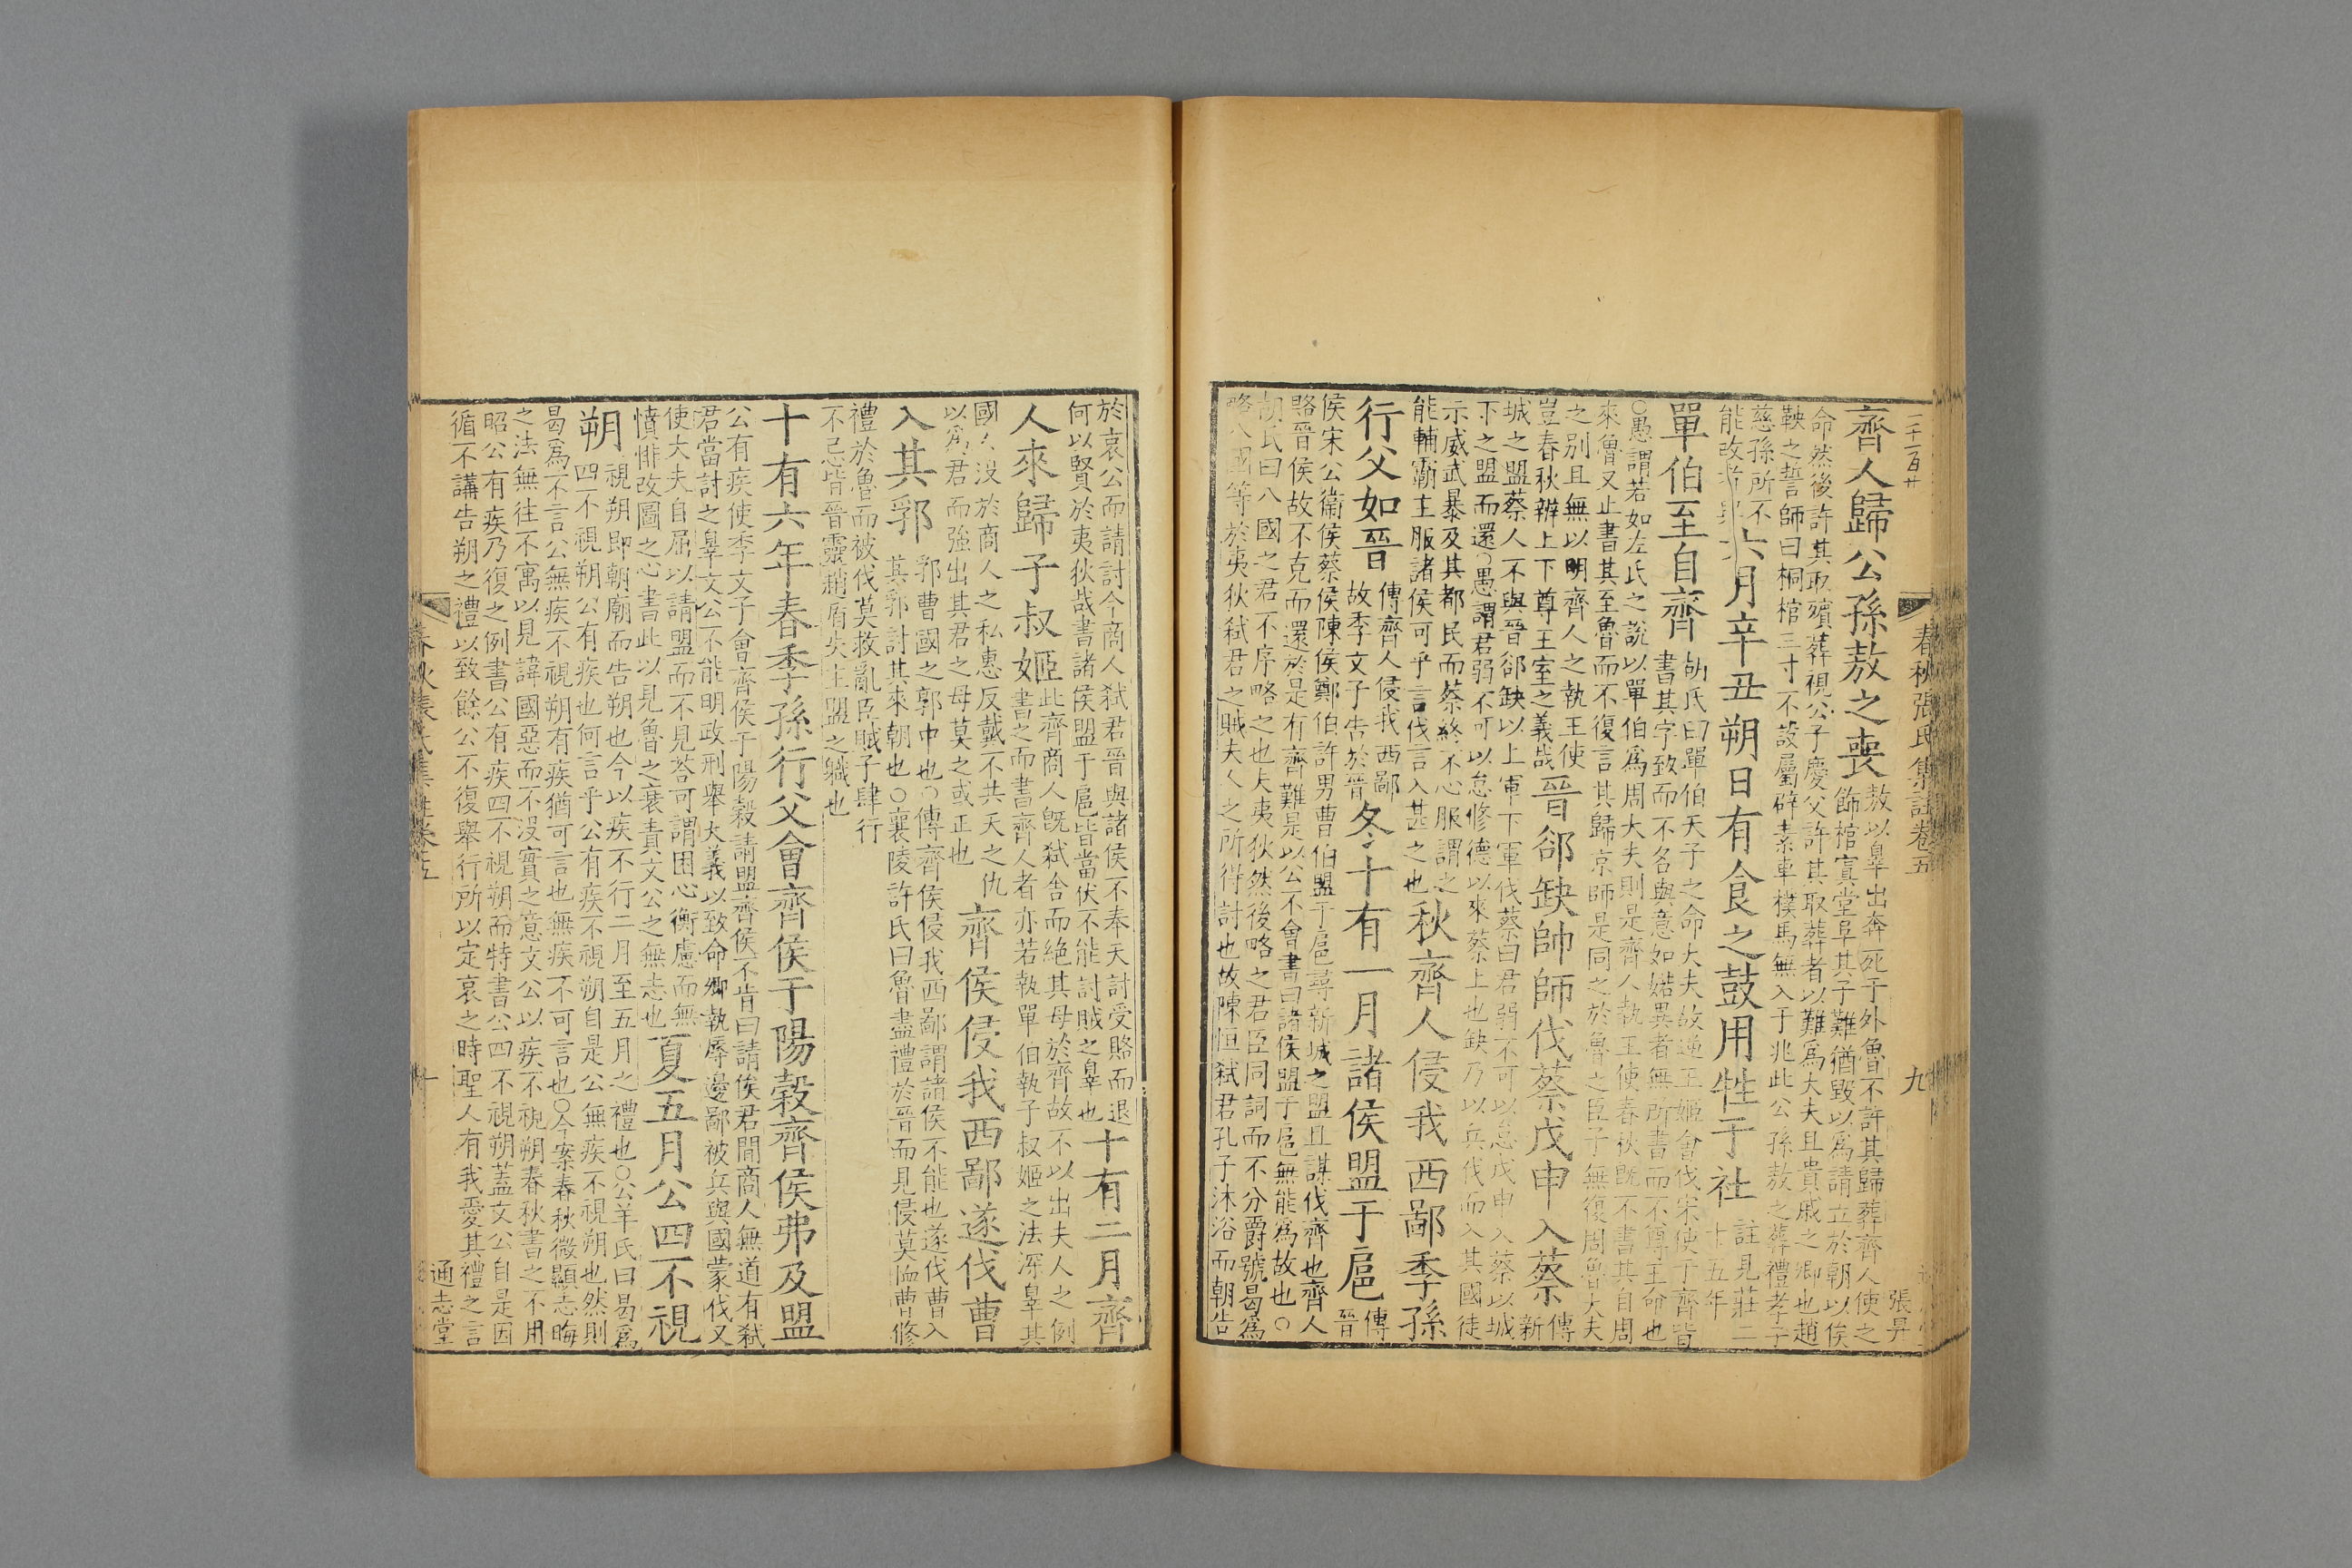 二千一百廿
春秋張氏集註卷五
九
張昇
齊人歸公孫敖之喪
敖以辠出奔死于外魯不許其歸葬齊人使之
飾棺寘堂阜其子難猶毀以爲請立於朝以俟
命然後許其取殯葬視公子慶父許其取葬者以難爲大夫且貴戚之卿也趙
鞅之誓師曰桐棺三寸不設屬辟素車樸馬無入于兆此公孫敖之葬禮孝子
慈孫所不
能改者
六月辛丑朔日有食之鼓用牲于社
註見莊二
十五年
單伯至自齊
胡氏曰單伯天子之命大夫故逆王姬會伐宋使于齊皆
書其字致而不名與意如婼異者無所書而不尊王命也
○愚謂若如左氏之說以單伯爲周大夫則是齊人執王使春秋旣不書其自周
來魯又止書其至魯而不復言其歸京師是同之於魯之臣子無復周魯大夫
之别且無以明齊人之執王使
豈春秋辨上下尊王室之義哉
晉郤缺帥師伐蔡戊申入蔡
傳
新
城之盟蔡人不與晉郤缺以上軍下軍伐蔡曰君弱不可以怠戊申入蔡以城
下之盟而還○愚謂君弱不可以怠修德以來蔡上也缺乃以兵伐而入其國徒
示威武暴及其都民而蔡終不心服謂之
能輔霸主服諸侯可乎言伐言入甚之也
秋齊人侵我西鄙季孫
行父如晉
傳齊人侵我西鄙
故季文子告於晉
冬十有一月諸侯盟于扈
傳
晉
侯宋公衞侯蔡侯陳侯鄭伯許男曹伯盟于扈尋新城之盟且謀伐齊也齊人
賂晉侯故不克而還於是有齊難是以公不會書曰諸侯盟于扈無能爲故也○
胡氏曰八國之君不序略之也夫夷狄然後略之君臣同詞而不分爵號曷爲
略八國等於夷狄弑君之賊夫人之所得討也故陳恒弑君孔子沐浴而朝告
於哀公而請討今商人弑君晉與諸侯不奉天討受賂而退
何以賢於夷狄哉書諸侯盟于扈皆當伏不能討賊之辠也
十有二月齊
人來歸子叔姬
此齊商人旣弑舍而絕其母於齊故不以出夫人之例
書之而書齊人者亦若執單伯執子叔姬之法深辠其
國人沒於商人之私惠反戴不共天之仇
以爲君而強出其君之母莫之或正也
齊侯侵我西鄙遂伐曹
入其郛
郛曹國之郭中也○傳齊侯侵我西鄙謂諸侯不能也遂伐曹入
其郛討其來朝也○襄陵許氏曰魯盡禮於晉而見侵莫恤曹修
禮於魯而被伐莫救亂臣賊子肆行
不忌皆晉靈趙盾失主盟之職也
十有六年春季孫行父會齊侯于陽穀齊侯弗及盟
公有疾使季文子會齊侯于陽穀請盟齊侯不肯曰請俟君間商人無道有弑
君當討之辠文公不能明政刑舉大義以致命卿執辱邊鄙被兵與國蒙伐又
使大夫自屈以請盟而不見荅可謂困心衡慮而無
憤悱改圖之心書此以見魯之衰責文公之無志也
夏五月公四不視
朔
視朔即朝廟而告朔也今以疾不行二月至五月之禮也○公羊氏曰曷爲
四不視朔公有疾也何言乎公有疾不視朔自是公無疾不視朔也然則
曷爲不言公無疾不視朔有疾猶可言也無疾不可言也○今案春秋微顯志晦
之法無往不寓以見諱國惡而不沒實之意文公以疾不視朔春秋書之不用
昭公有疾乃復之例書公有疾四不視朔而特書公四不視朔蓋文公自是因
循不講告朔之禮以致餘公不復舉行所以定哀之時聖人有我愛其禮之言
春秋張氏集註卷五
十
通志堂